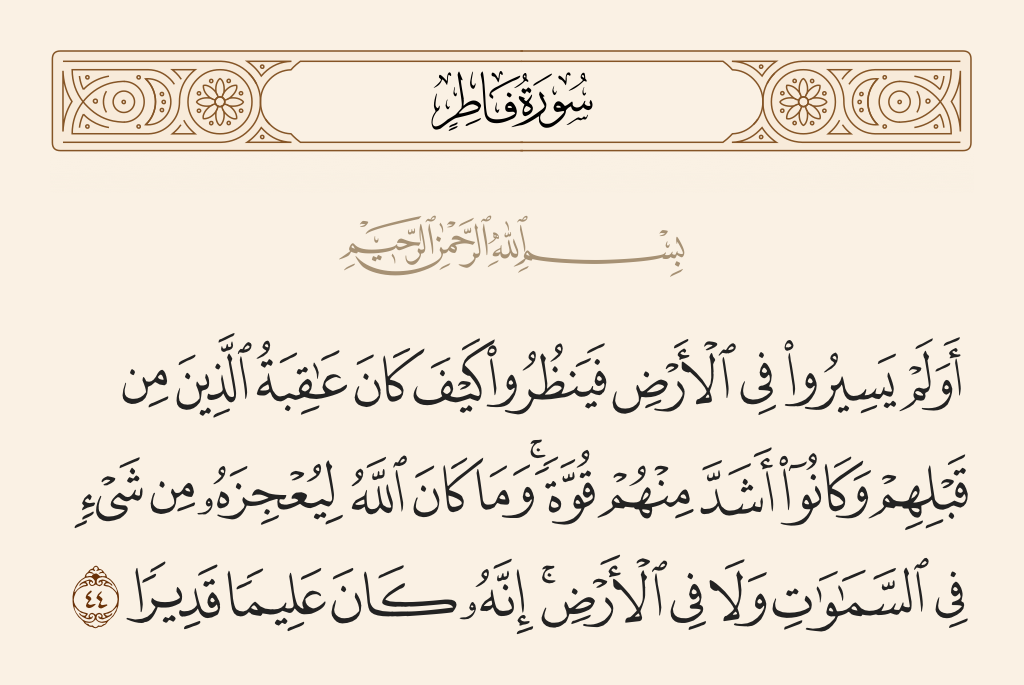 سُورَةُ فَاطِرٍ
بِسْمِ ٱللَّهِ ٱلرَّحْمَٰنِ ٱلرَّحِيمِ
أَوَلَمْ يَسِيرُوا۟ فِى ٱلْأَرْضِ فَيَنظُرُوا۟ كَيْفَ كَانَ عَٰقِبَةُ ٱلَّذِينَ مِن
قَبْلِهِمْ وَكَانُوٓا۟ أَشَدَّ مِنْهُمْ قُوَّةً ۚ وَمَا كَانَ ٱللَّهُ لِيُعْجِزَهُۥ مِن شَىْءٍ
فِى ٱلسَّمَٰوَٰتِ وَلَا فِى ٱلْأَرْضِ ۚ إِنَّهُۥ كَانَ عَلِيمًا قَدِيرًا ٤٤